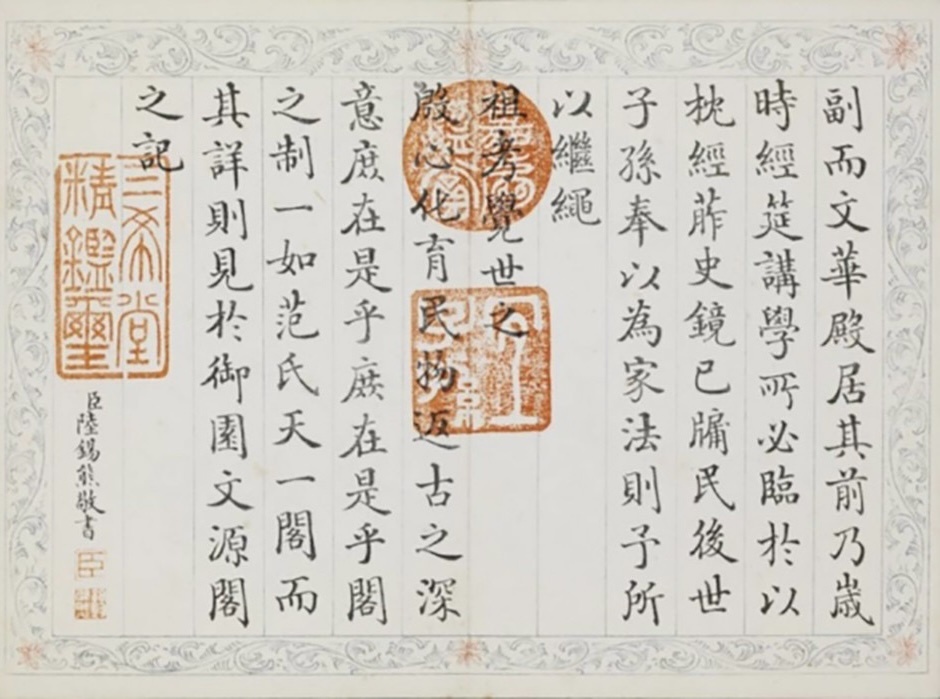 副而文華殿居其前乃歲
時經筵講學所必臨於以
枕經葄史鏡已牖民後世
子孫奉以為家法則予所
以繼繩
祖考覺世之
殷心化育民物返古之深
意庶在是乎庶在是乎閣
之制一如范氏天一閣而
其詳則見於御園文源閣
之記
臣陸錫熊敬書
宜子孫
三希堂
精鑑璽
臣